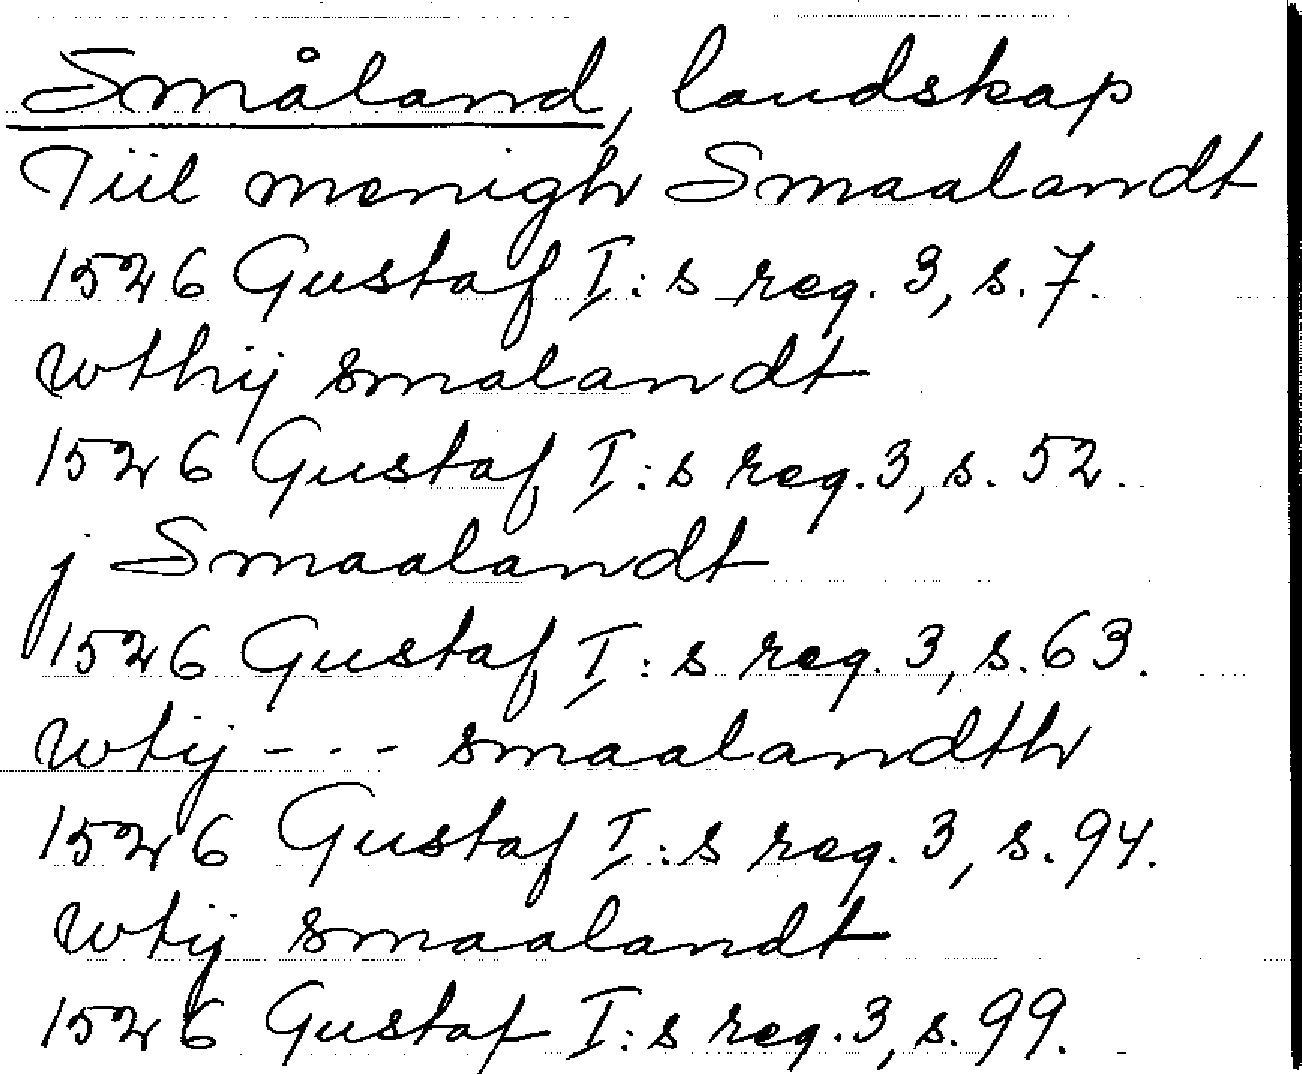 Småland, landskap
Tiil menigh Smaalandt
1526 Gustaf I:s reg. 3, s. 7.
wthij smalandt
1526 Gustaf I:s reg. 3, s. 52.
j Smaalandt
1526 Gustaf I:s reg. 3, s. 63.
wtij - - - smaalandth
1526 Gustaf I:s reg. 3, s. 94.
wtij smaalandt
1526 Gustaf I:s reg. 3, s. 99.